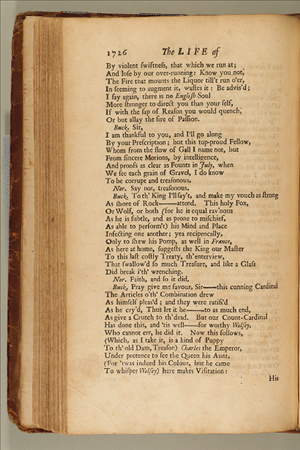 1726 The LIFE of
By violent swiftness, that which we run at;
And lose by our over-running: Know you not,
The Fire that mounts the Liquor till't run o'er,
In seeming to augment it, wastes it: Be advis'd;
I say again, there is no English Soul
More stronger to direct you than your self,
If with the sap of Reason you would quench,
Or but allay the fire of Passion.
Buck. Sir,
I am thankful to you, and I'll go along
By your Prescription; but this top-proud Fellow,
Whom from the flow of Gall I name not, but
From sincere Motions, by intelligence,
And proofs as clear as Founts in July, when
We see each grain of Gravel, I do know
To be corrupt and treasonous.
Nor. Say not, treasonous.
Buck. To th' King I'll say't, and make my vouch as strong
As shore of Rock——attend. This holy Fox,
Or Wolf, or both (for he is equal rav'nous
As he is subtle, and as prone to mischief,
As able to perform't) his Mind and Place
Infecting one another; yea reciprocally,
Only to shew his Pomp, as well in France,
As here at home, suggests the King our Master
To this last costly Treaty, th'enterview,
That swallow'd so much Treasure, and like a Glass
Did break i'th' wrenching.
Nor. Faith, and so it did.
Buck. Pray give me favour, Sir——this cunning Cardinal
The Articles o'th' Combination drew
As himself pleas'd; and they were ratifi'd
As he cry'd, Thus let it be——to as much end,
As give a Crutch to th'dead. But our Count-Cardinal
Has done this, and 'tis well——for worthy Wolsey,
Who cannot err, he did it. Now this follows,
(Which, as I take it, is a kind of Puppy
To th' old Dam, Treason) Charles the Emperor,
Under pretence to see the Queen his Aunt,
(For 'twas indeed his Colour, but he came
To whisper Wolsey) here makes Visitation:
His